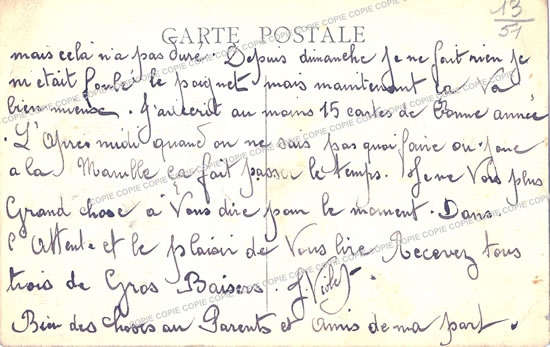 13
51
CARTE POSTALE
mais cela n'a pas duré. Depuis dimanche je ne fait rien je
m'était foulé le poignet mais maintenant ça va
bien mieux. J'ai ecrit au moins 15 cartes de bonne année
. L'Apres midi quand on ne sais pas quoi faire on joue
a la Manille ça fait passer le temps. Je ne Vois plus
Grand chose à Vous dire pour le moment. Dans
l'Attente et le plaisir de Vous lire Recevez tous
trois de Gros Baisers. J. Violet
Bien des choses au Parents et Amis de ma part.
COPIE COPIE COPIE COPIE COPIE COPIE